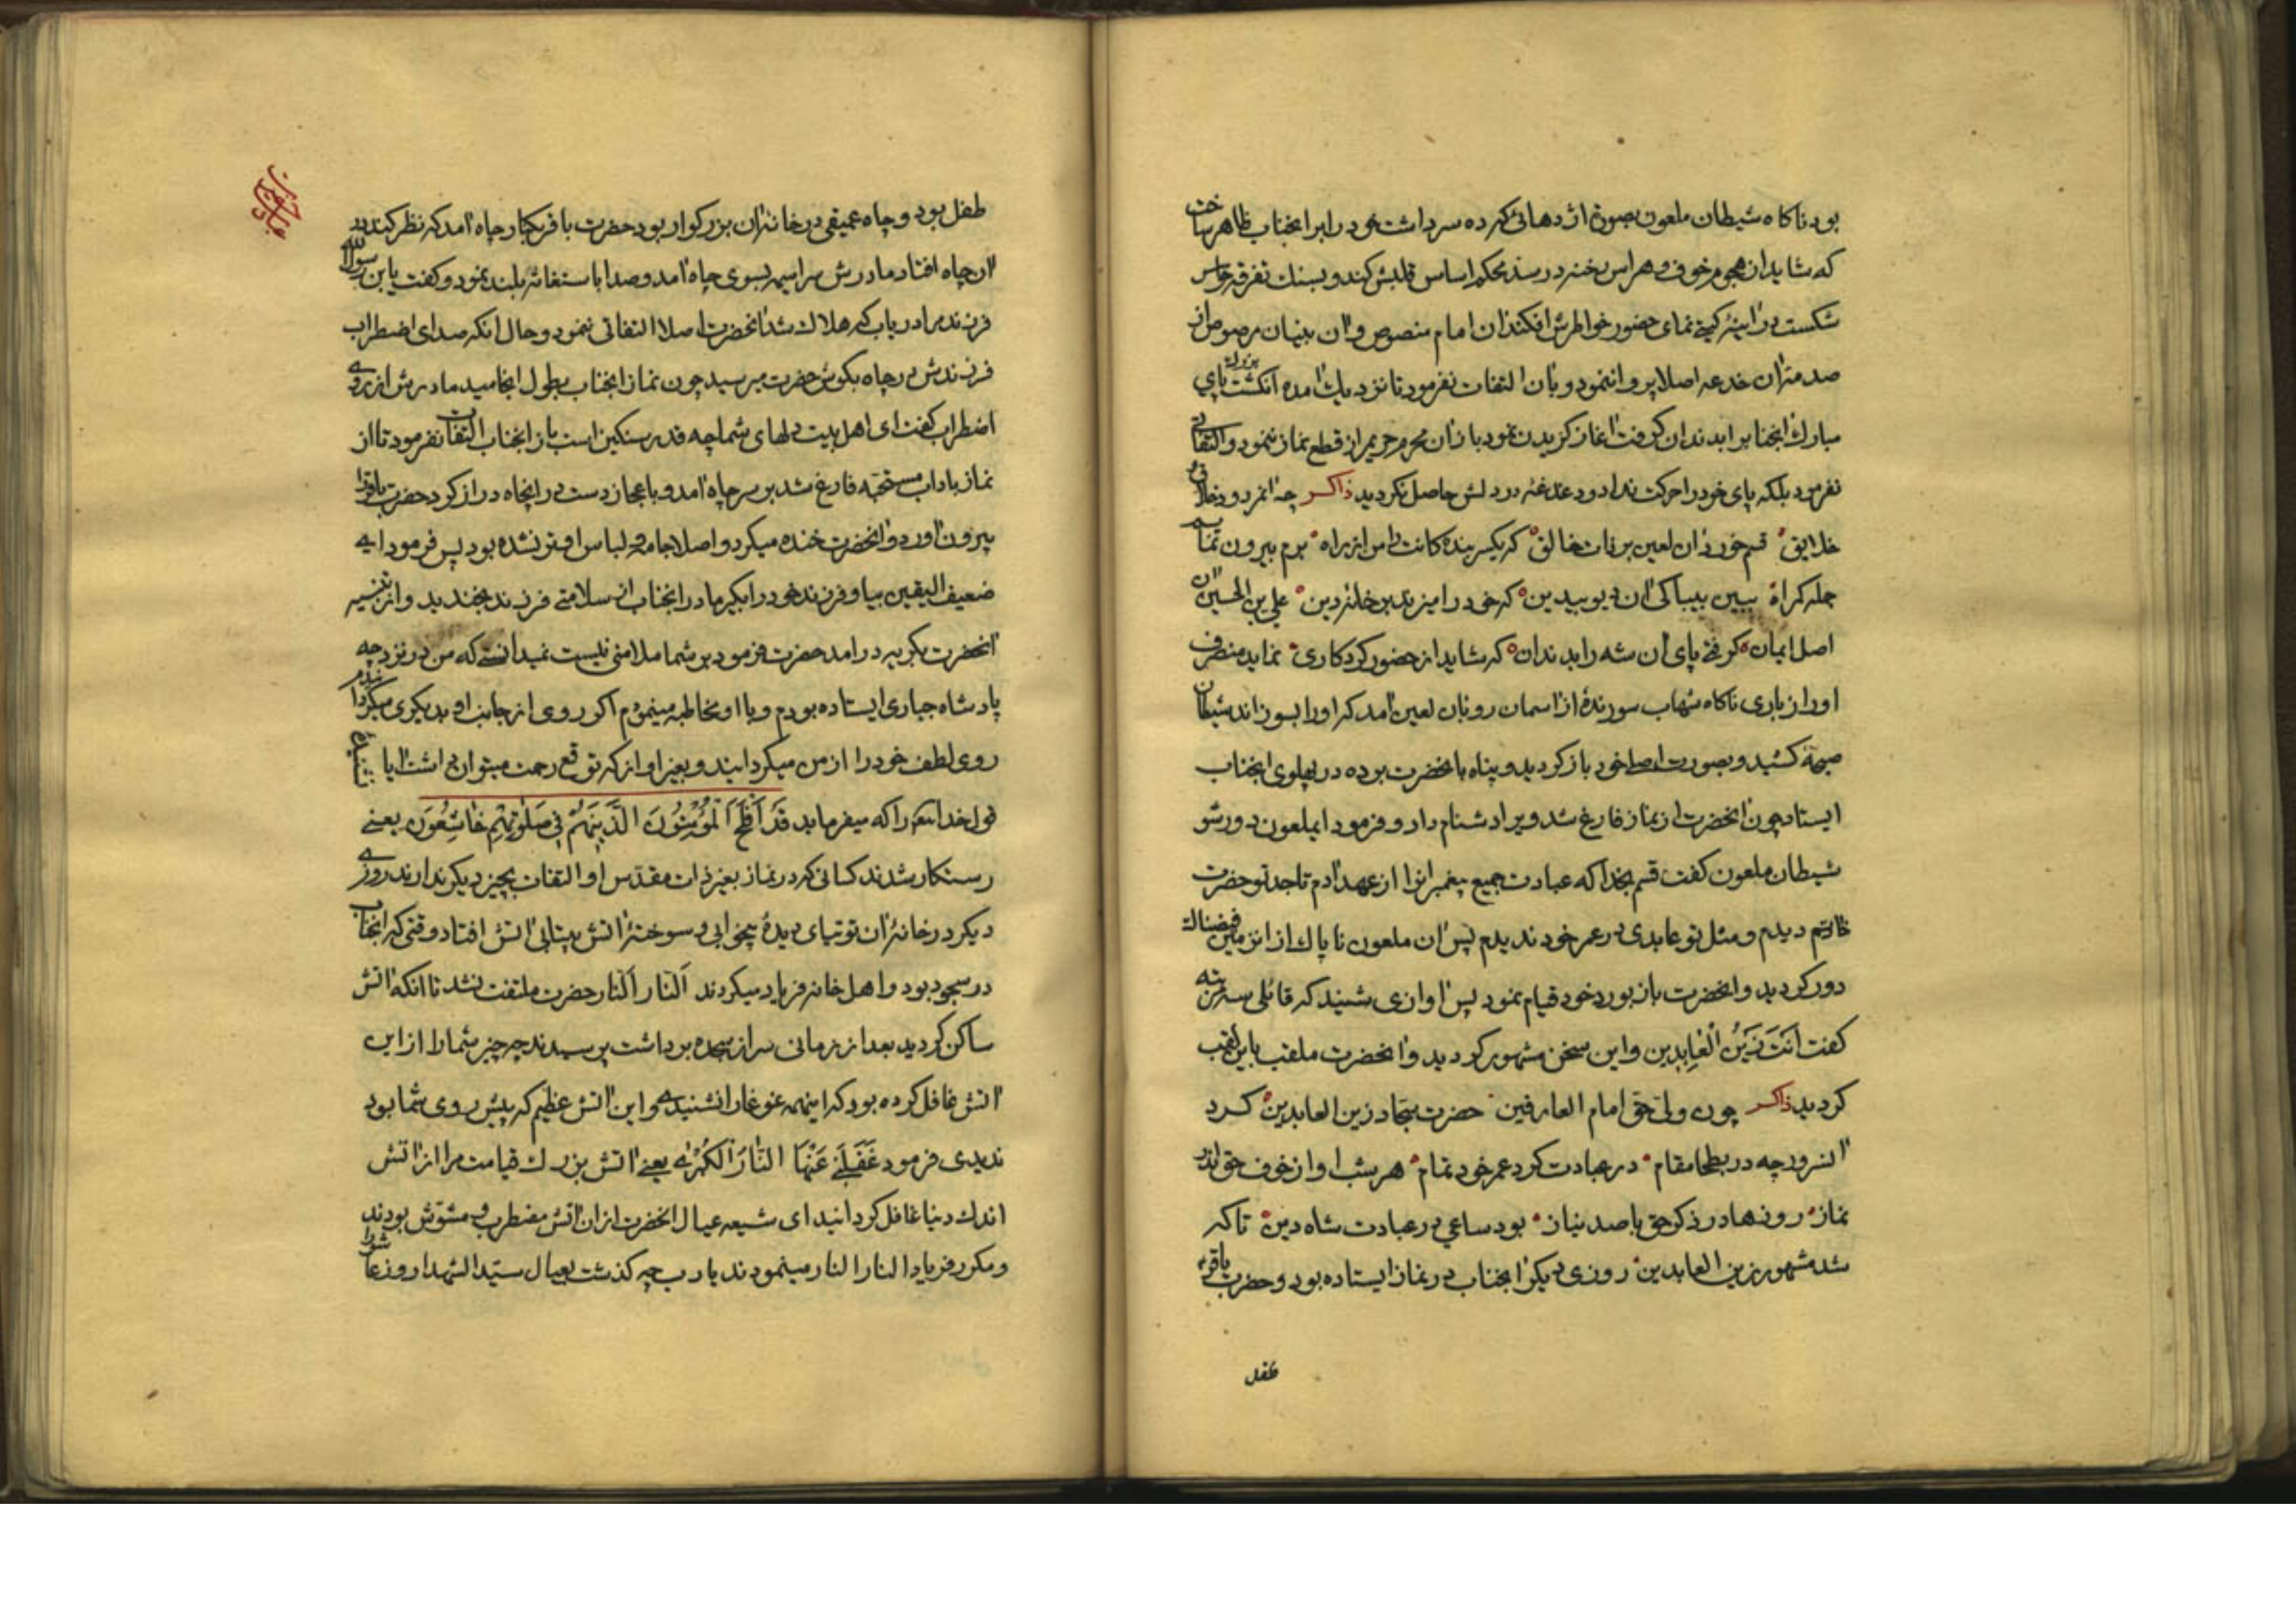 بود ناکاه شیطان ملعون بصورة اژدهائی که ده سر داشت خود را برابر انجناب ظاهر ساخت
که شاید از هجوم خوف و هراس رخنه در سد محکم اساس قلبش کند و بسنك تفرقه حواس
شکست در اینهٔ کیتی نمای حضور خواطرش افکند ان امام منصوص و ان بنیان مرصوص از
صدمه ان خدعه اصلا پروا ننمود و بان التفات نفرمود تا نزدیك امده انکشت بزرك پای
مبارك انجناب را بدندان کرفت اغاز کزیدن نمود باز ان محرم حریم راز قطع نماز ننمود و التفات
نفرمود بلکه پای خود را حرکت نداد و دغدغه در دلش حاصل نکردید ذاکر چه انمردود
خلایق قسم خورد ان لعین بر ذات خالق که یکسر بندهٔ کانت را من از راه برم بیرون تمام
جمله کمراه ببین بیباکی ان دیو بیدین که خود را میزند بر خانهٔ دین علی بن الحسین ان
اصل ایمان کرفتی پای ان شه را بدندان که شاید از حضور کردکاری نماید منصرف
او را ز یاری ناکاه شهاب سوزندهٔ از اسمان رو بان لعین امد که او را بسوزاند شیطان
صیحهٔ کشید و بصورت اصل خود باز کردید و پناه بانحضرت برده در پهلوی انجناب
ایستاد چون انحضرت از نماز فارغ شد ویرا دشنام داد و فرمود ایملعون دور شو
شیطان ملعون کفت قسم بخدا که عبادت جمیع پیغمبرانرا از عهد ادم تا جد تو حضرت
خاتم دیدم و مثل تو عابدی در عمر خود ندیدم پس ان ملعون ناپاك از انزمین فیضناك
دور کردید و انحضرت باز بورد خود قیام نمود پس اوازی شنیند که قائلی سه مرتبه
کفت اَنْتَ زَیْنُ الْعٰابِدین و این سخن مشهور کردید و انحضرت ملقب باین لقب
کردید ذاکر چون ولی حق امام العارفین حضرت سجاد زین العابدین کرد
انسرور چه در بطحا مقام در عبادت کرد عمر خود تمام هر شب او از خوف حق اندر
نماز روزها در ذکر حق با صد نیاز بود ساعی در عبادت شاه دین تا که
شد مشهور زین العابدین روزی دیکر انجناب در نماز ایستاده بود و حضرت باقر
طفل
طفل بود و چاه عمیقی در خانه ان بزرکوار بود حضرت باقر بکنار چاه امد که نظر کند در
ان چاه افتاد مادرش سراسیمه بسوی چاه امد و صدا باستغاثه بلند نمود و کفت یابن رسول الله
فرزند مرا دریاب که هلاك شد انحضرت اصلا التفاتی ننمود و حال انکه صدای اضطراب
فرزندش در چاه بکوش حضرت میرسید چون نماز انجناب بطول انجامید مادرش از روی
اضطراب کفت ای اهل بیت دلهای شما چه قدر سنکین است باز انجناب التفات نفرمود تا از
نماز باداب مستحبه فارغ شد بر سر چاه امد و باعجاز دست در انچاه دراز کرد حضرت باقر را
بیرون اورد و انحضرت خنده میکرد و اصلا جامه و لباس او تر نشده بود پس فرمود ای
ضعیف الیقین بیا و فرزند خود را بکیر مادر انجناب از سلامتی فرزند بخندید و از تنبیه
انحضرت بکریه در امد حضرت فرمود بر شما ملامتی نیست نمیدانستی که من در نزد چه
پادشاه جباری ایستاده بودم و با او مخاطبه مینمودم اکر روی از جانب او بدیکری میکردانیدم
روی لطف خود را از من میکردانید و بغیر او از که توقع رحمت میتوان داشت ایا
قول خدا را که میفرماید قَدْ اَفْلَحَ الْمُؤْمِنُونَ الَّذینَ هُمْ فی صَلٰوتِهِمْ خٰاشِعُونَ یعنے
رستکار شدند کسانی که در نماز بغیر ذات مقدس او التفات بچیز دیکر ندارند روزی
دیکر در خانهٔ ان توتیای دیدهٔ بیخوابی و سوختهٔ اتش بیتابی اتش افتاد وقتی که انجناب
در سجود بود و اهل خانه فریاد میکردند اَلنّار اَلنّار حضرت ملتفت نشد تا انکه اتش
ساکن کردید بعد از زمانی سر از سجده برداشت پرسیدند چه چیز شما را از این
اتش غافل کرده بود که اینهمه غوغا را نشنیدی و این اتش عظیم که پیش روی شما بود
ندیدی فرمود غَفَلَنی عَنْهَا النّٰارُ الْکُبْرٰی یعنے اتش بزرك قیامت مرا از اتش
اندك دنیا غافل کردانید ای شیعه عیال انحضرت از ان اتش مضطرب و مشوش بودند
و مکرر فریاد النار النار مینمودند یا رب چه کذشت بعیال سیّد الشهدا روز عاشورا